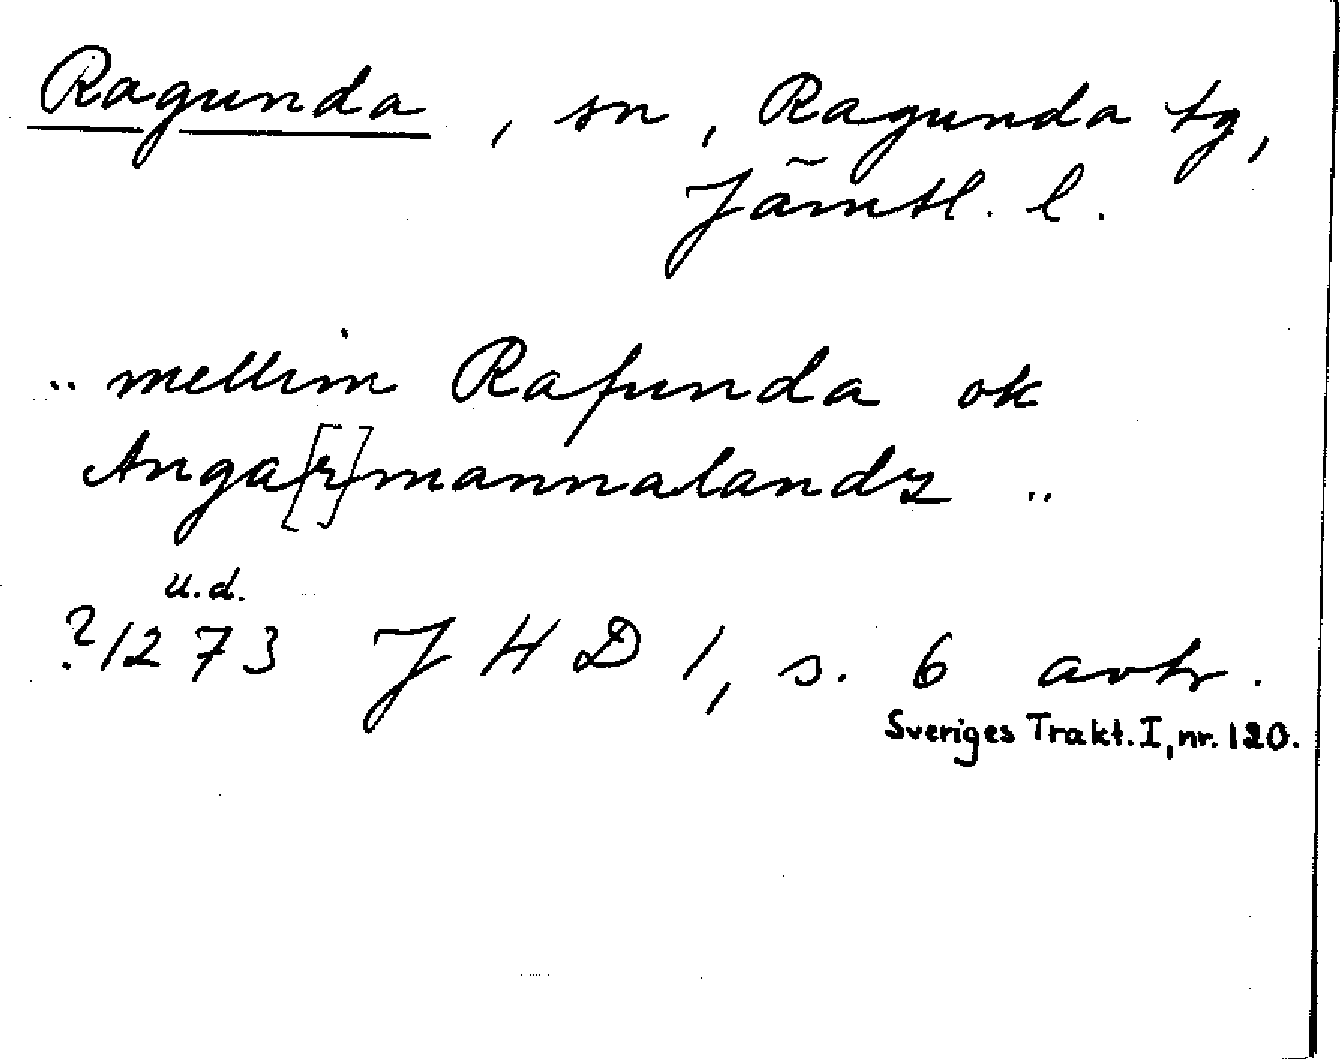 Ragunda, sn, Ragunda tg,
Jämtl. l.
.. mellim Rafunda ok
Anga[r]mannalandz ..
u.d.
?1273 J H D 1, s. 6 avtr.
Sveriges Trakt. I, nr. 120.